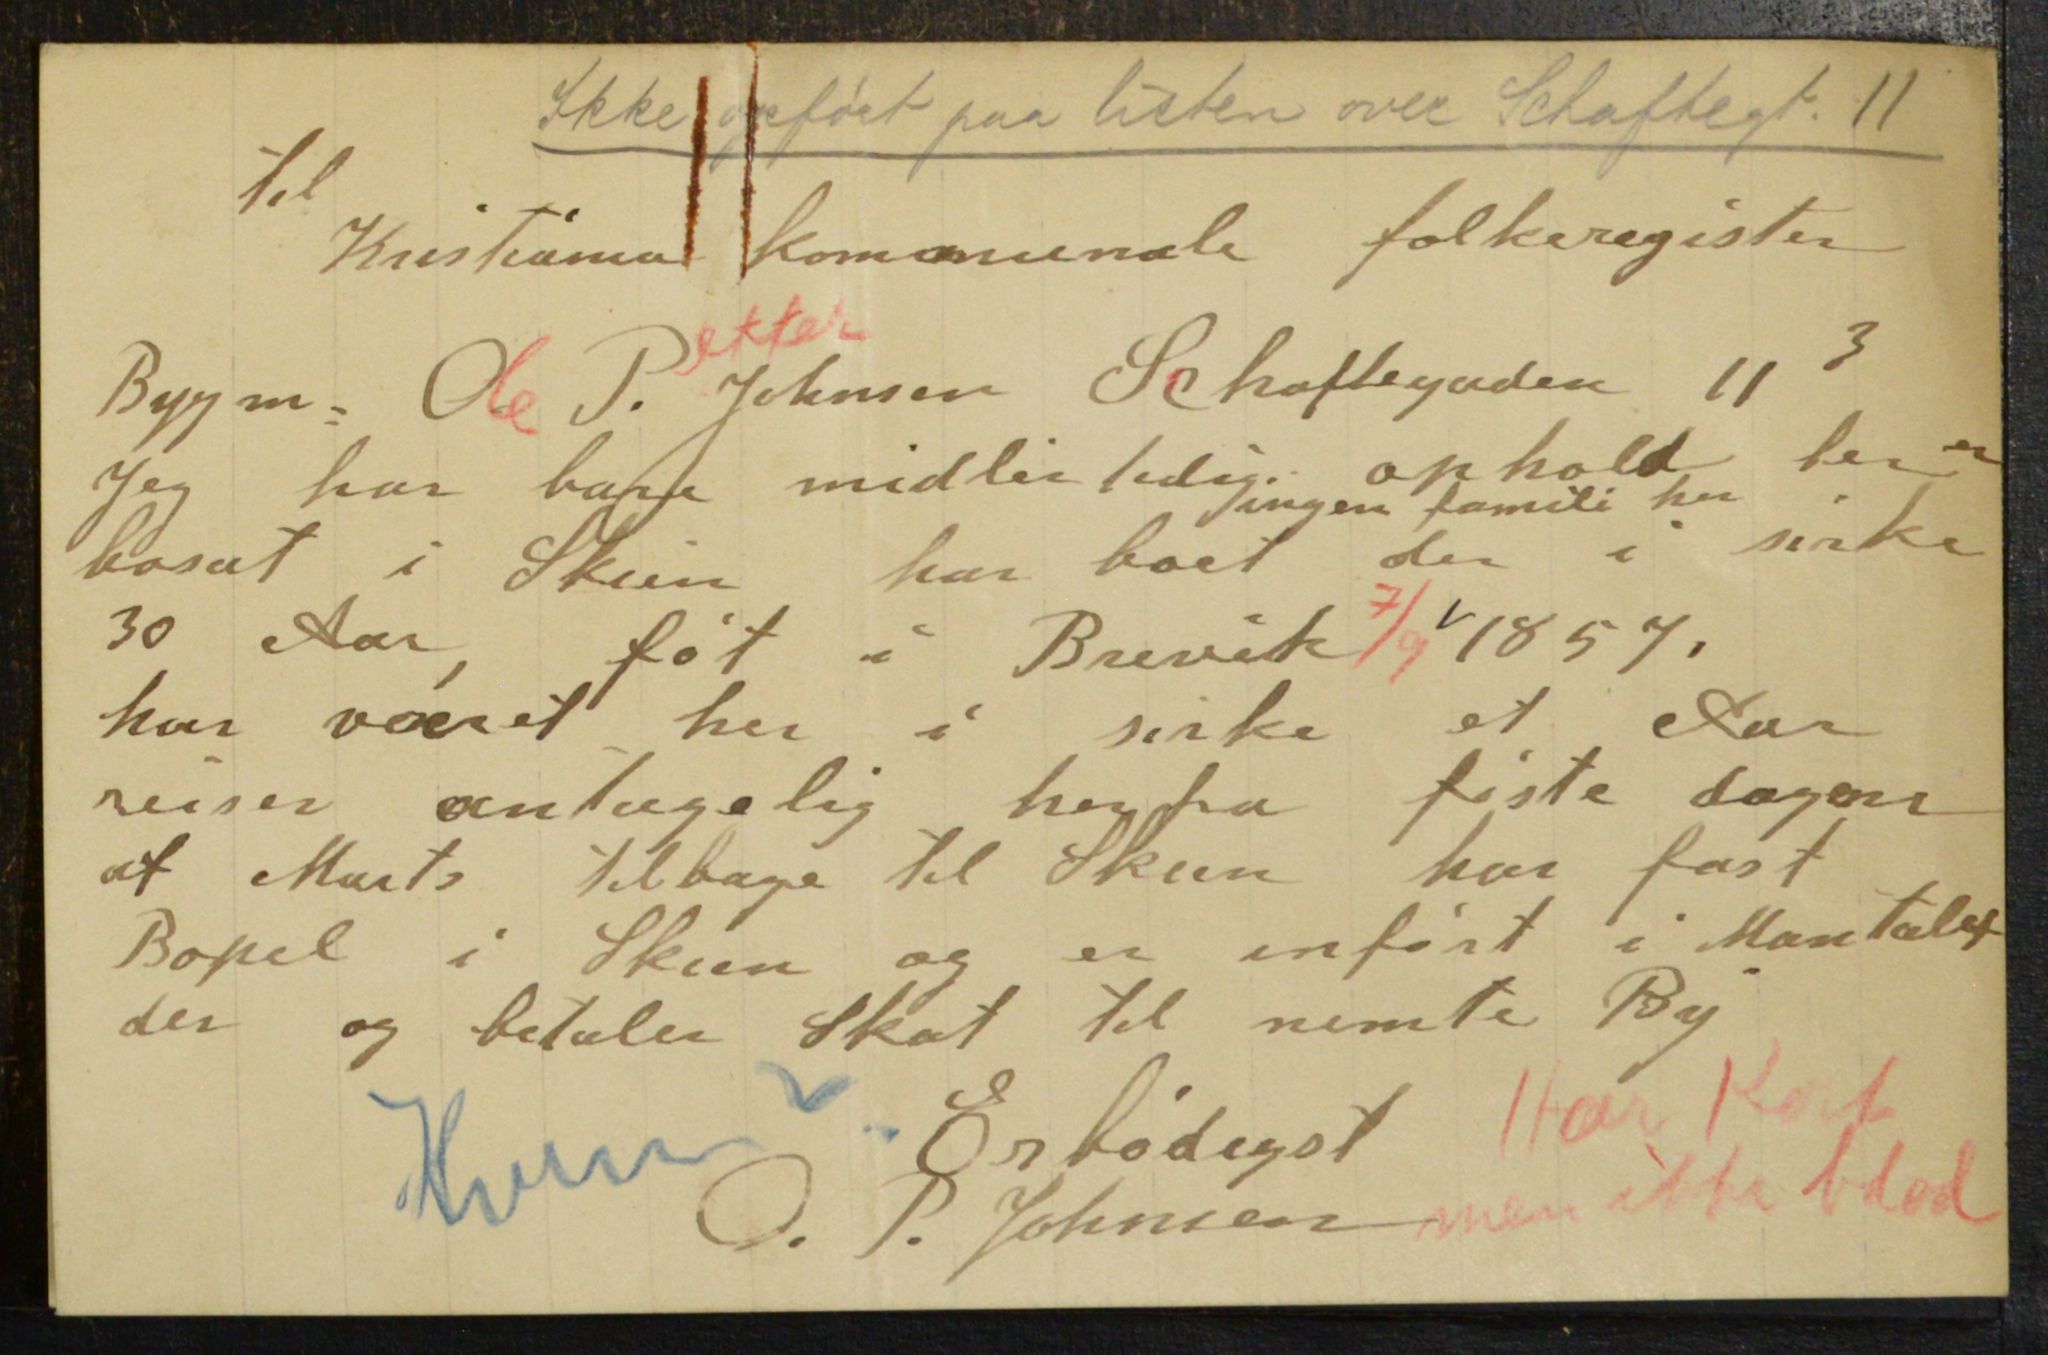 Ikke opført paa listen over Schaftegt. 11
til
Kristiania kommunale folkeregister
Bygm. Ole P.etter Johnsen Schaftegaden 11 3
Jeg har bare midlertidig ophold her er
ingen famili her
bosat i Skien har boet der i sirka
30 Aar, føt i Brevik 7/9 1857.
har været her i sirka et Aar
reiser antagelig herfra føste dagene
af Marts tilbage til Skien har fast
Bopel i Skien og er inført i Mantalet
der og betaler Skat til nemte By
Erbødigst
O. P. Johnsen
Har Kort
men ikke blad